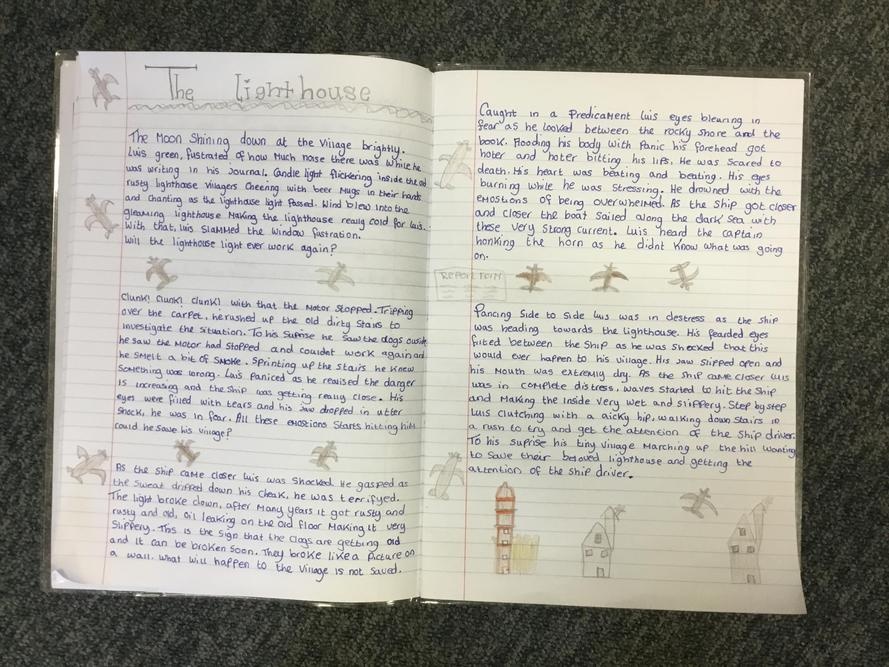 The Lighthouse
The Moon Shining down at the Village brightly.
Luis green, fustrated of how Much noise there was while he
was writing in his Journal. Candle light flickering inside the old
rusty lighthouse villagers Cheering with beer Mugs in their hands
and Chanting as the lighthouse light Passed. Wind blew into the
gleaming lighthouse Making the lighthouse really cold for Luis.
With that, Luis SlaMMed the window fustration.
Will the lighthouse light ever work again?
Clunk! Clunk! Clunk! with that the Motor Stopped. Tripping
over the carpet, he rushed up the old dirty Stairs to
investigate the situation. To his Suprise he Saw the clogs
he saw the Motor had Stopped and couldnt work again and
he smelt a bit of SMoke. Sprinting up the Stairs he knew
Something was wrong. Luis Paniced as he realised the danger
is increasing and the Ship was getting really close. His
eyes were filled with tears and his Jaw dropped in utter
Shock, he was in fear. All these eMotions Starts hitting him
Could he Save his Village?
As the Ship caMe closer Luis was Shocked. He gasped as
the Sweat dripped down his cheak, he was terrifyed.
The light broke down, after Many years it got rusty and
rusty and old, oil leaking on the old floor Making it very
Slippery. This is the Sign that the Clogs are getting old
and it can be broken Soon. They broke like a Picture on
a wall. What will happen to the Village is not Saved.
Caught in a Predicament Luis eyes blearing in
fear as he looked between the rocky shore and the
book. flooding his body with Panic his forehead got
hoter and hoter bitting his lips. He was scared to
death. His heart was beating and beating. His eyes
burning while he was Stressing. He drowned with the
eMotions of being overwhelMed. As the Ship got closer
and closer the boat Sailed along the dark Sea with
these very Strong current. Luis heard the captain
honking the horn as he didnt Know what was going
on.
Pancing Side to Side Luis was in destress as the Ship
was heading towards the lighthouse. His fearded eyes
flited between the Ship as he was Shocked that this
would ever happen to his village. His Jaw Slipped open and
his Mouth was extremly dry. As the Ship caMe closer Luis
was in complete distress, waves started to hit the Ship
and Making the inside Very wet and Slippery. Step by step
Luis Clutching with a hip, walking down Stairs in
a rush to try and get the attention of the Ship driver.
To his Suprise his tiny Village Marching up the hill wanting
to Save their beloved lighthouse and getting the
attention of the Ship driver.